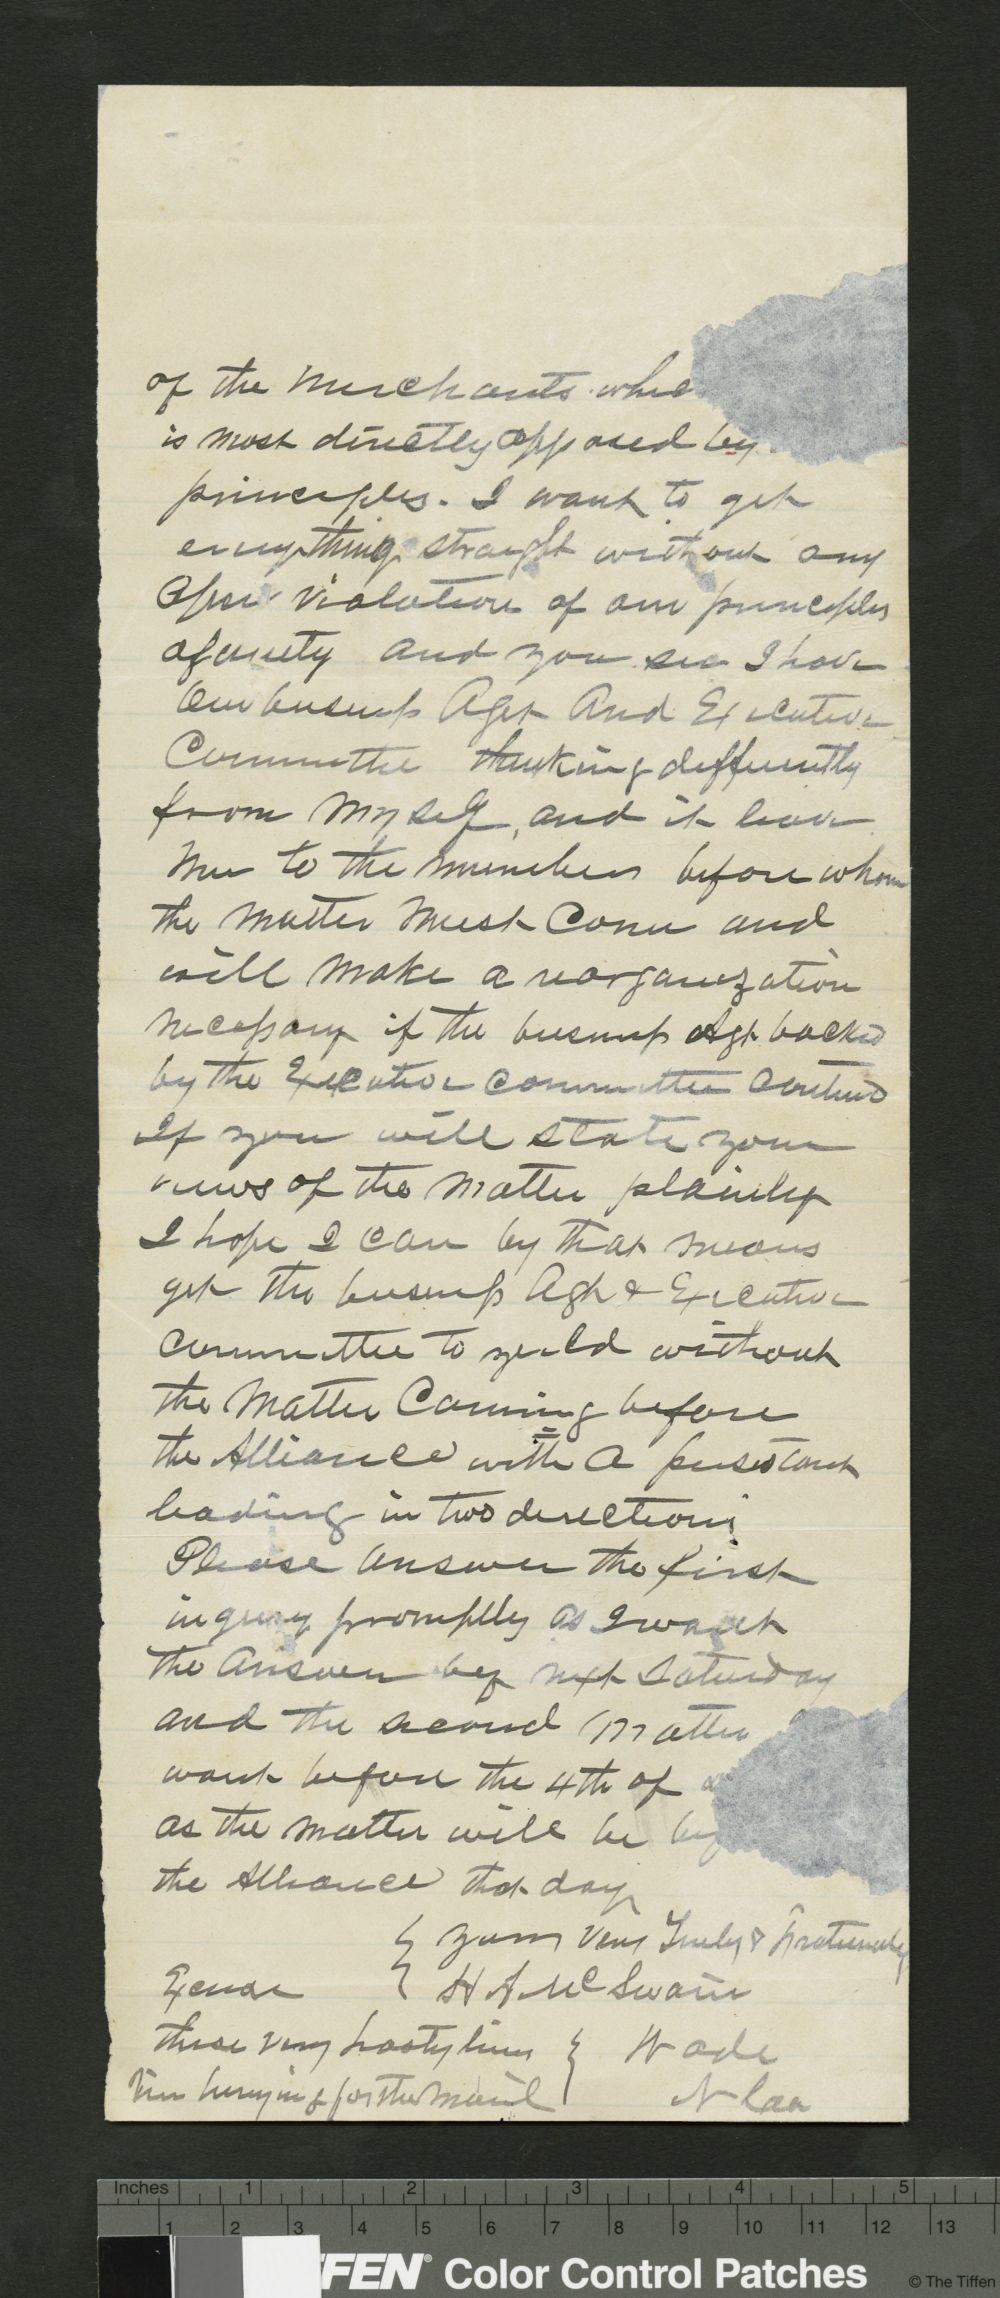 of the Merchants whic
is most directly opposed by
principles. I want to get
everything straight without any
open violation of our principles
of amity and you see I have
our business Agt And Executive
Committee thinking differently
from Myself, and it leave
me to the members before whom
the matter Must Come and
will Make a reorganization
necessary if the business Agt backed
by the Executive Committee Contend
If you will state your
views of the Matter plainly
I hope I can by that means
get the business Agt & Executive
Committee to yeild without
the Matter Coming before
the Alliance with a
leading in two directions
Please Answer the first
inquiry promptly as I want
the Answer by next Saturday
and the second Matter
want before the 4th of
as the matter will be
the Alliance that day
Yours Very Truly & Fraternally
H A McSwain
Excuse
these very hasty lines
Wade
I'm hurrying for the Mail
N Caa
Inches 1 2 3 4 5
1 2 3 4 5 6 7 8 9 10 11 12 13
FFEN® Color Control Patches
© The Tiffen